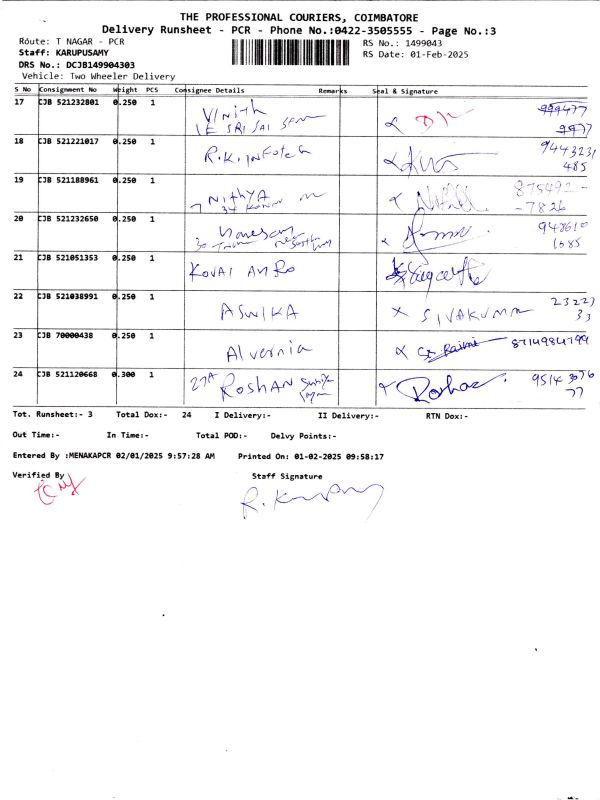 THE PROFESSIONAL COURIERS, COIMBATORE
Delivery Runsheet - PCR - Phone No.:0422-3505555 - Page No.:3
Route: T NAGAR - PCR
RS No.: 1499043
Staff: KARUPUSAMY
RS Date: 01-Feb-2025
DRS No.: DCJB149904303
Vehicle: Two Wheeler Delivery
S No Consignment No Weight PCS Consignee Details Remarks Seal & Signature
17 CJB 521232801 0.250 1 Vinith 999477
SRI SAI 9977
18 CJB 521221017 0.250 1 R.K. INFOtech 9443231
485
19 CJB 521188961 0.250 1 NithYA 875492-
7 34 -7826
20 CJB 521232650 0.250 1 948610
30 1685
21 CJB 521051353 0.250 1 KOVAI AURO
22 CJB 521038991 0.250 1 ASWIKA SIVAKUMAR 23223
33
23 CJB 70000438 0.250 1 Alvernia 8714984799
24 CJB 521120668 0.300 1 27A ROSHAN Roshan 9514 3076
77
Tot. Runsheet:- 3 Total Dox:- 24 I Delivery:- II Delivery:- RTN Dox:-
Out Time:- In Time:- Total POD:- Delvy Points:-
Entered By :MENAKAPCR 02/01/2025 9:57:28 AM Printed On: 01-02-2025 09:58:17
Verified By Staff Signature